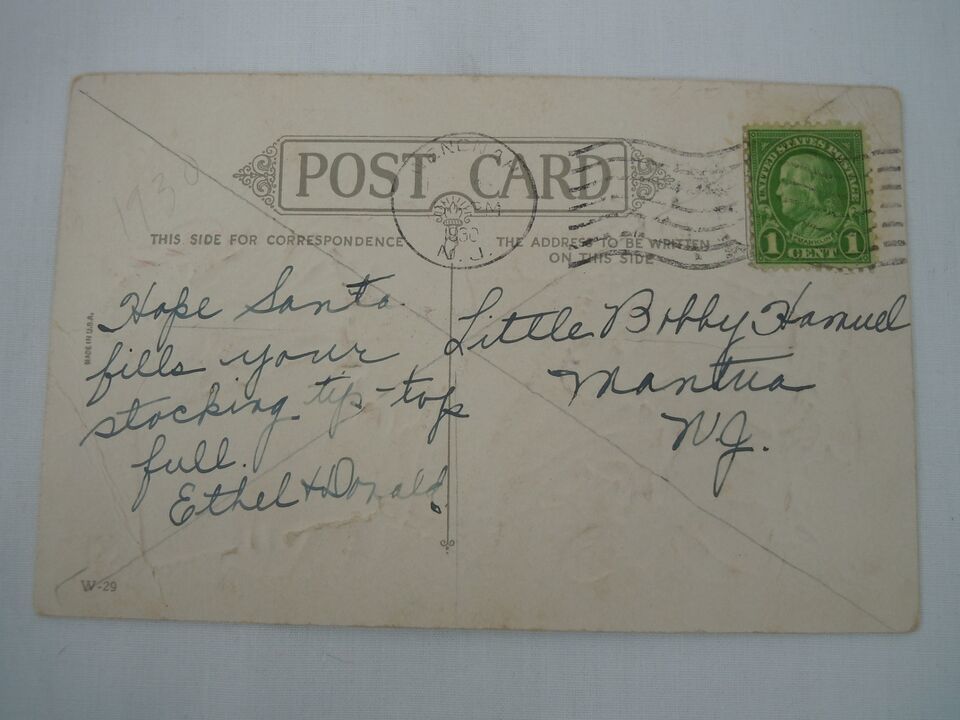 POST CARD
1930
PM
1930
N. J.
UNITED STATES POSTAGE
FRANKLIN
1 CENT 1
THIS SIDE FOR CORRESPONDENCE
THE ADDRESS TO BE WRITTEN
ON THIS SIDE
MADE IN U.S.A.
Hope Santa
fills your
stocking tip-top
full.
Ethel & Donald.
Little Bobby Hamuel
Mantua
N.J.
W-29